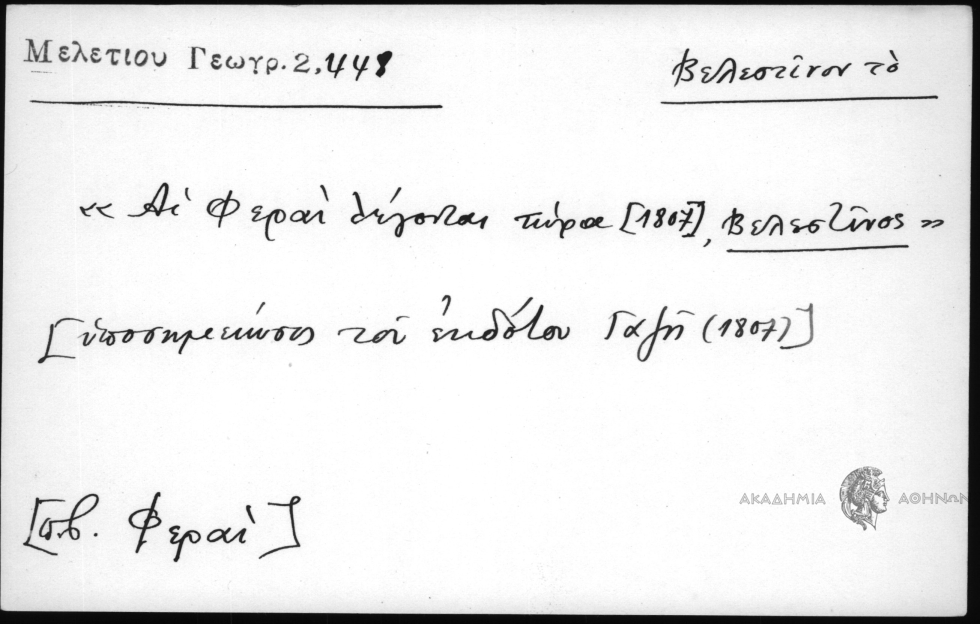 Μελετιου Γεωγρ. 2, 448
Βελεστῖνον τὸ
« Αἱ Φεραὶ λέγονται τώρα [1807], Βελεστῖνος »
[ὑποσημειώσεις τοῦ ἐκδότου Γαζῆ (1807)]
[π.β. Φεραὶ]
ΑΚΑΔΗΜΙΑ ΑΘΗΝΩΝ